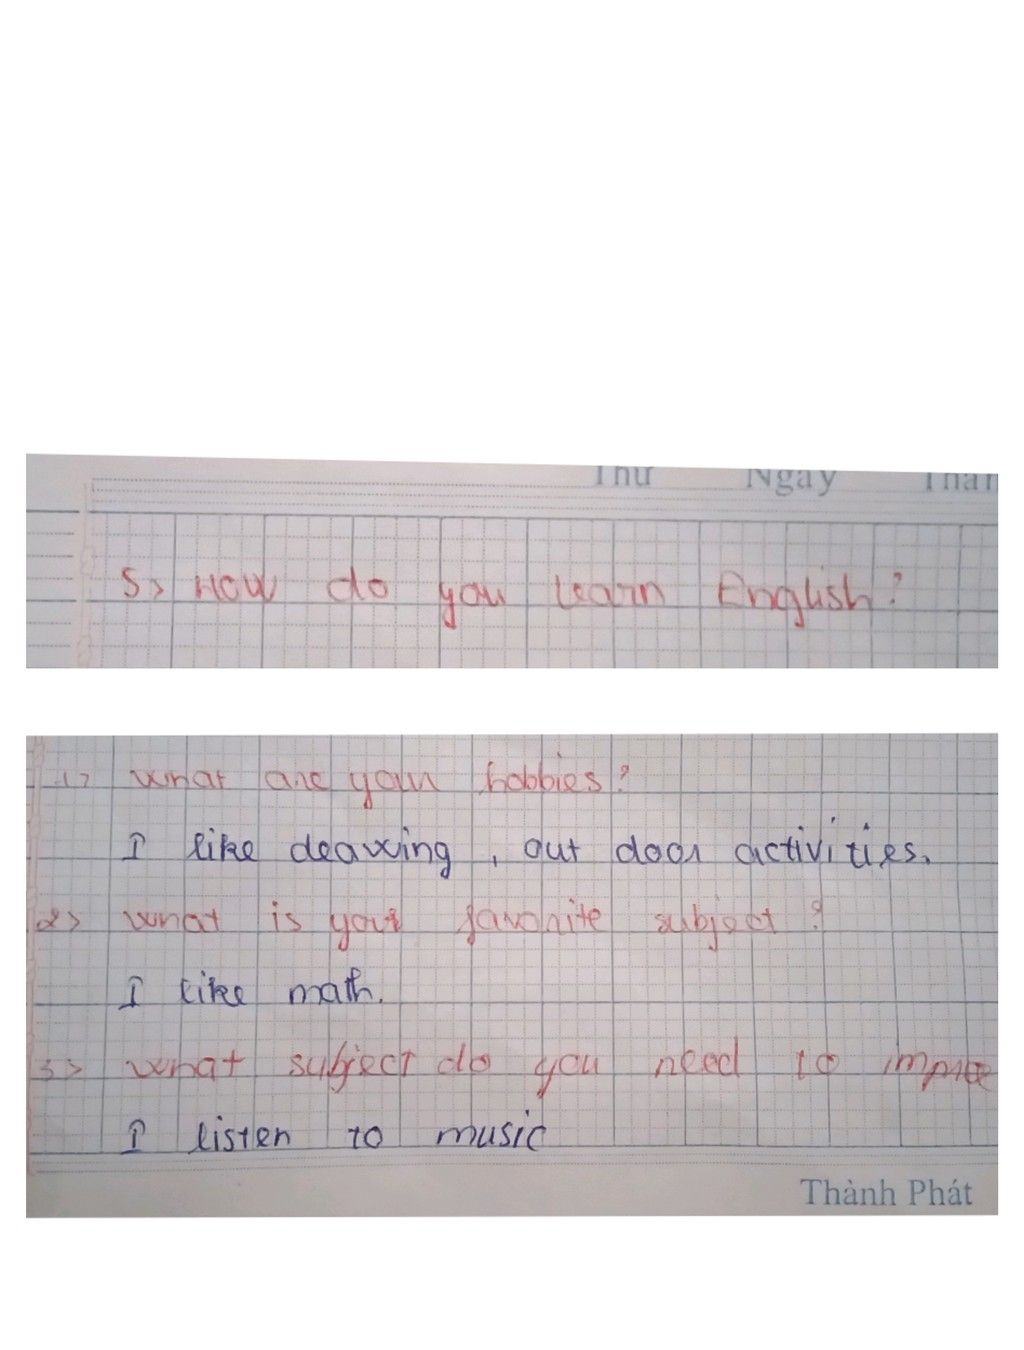 Thứ Ngày Thán
5> How do you learn English?
1> What are your hobbies?
I like deawing, out door activities.
2> what is your favorite subject?
I like math.
3> what subject do you need to
I listen to music
Thành Phát